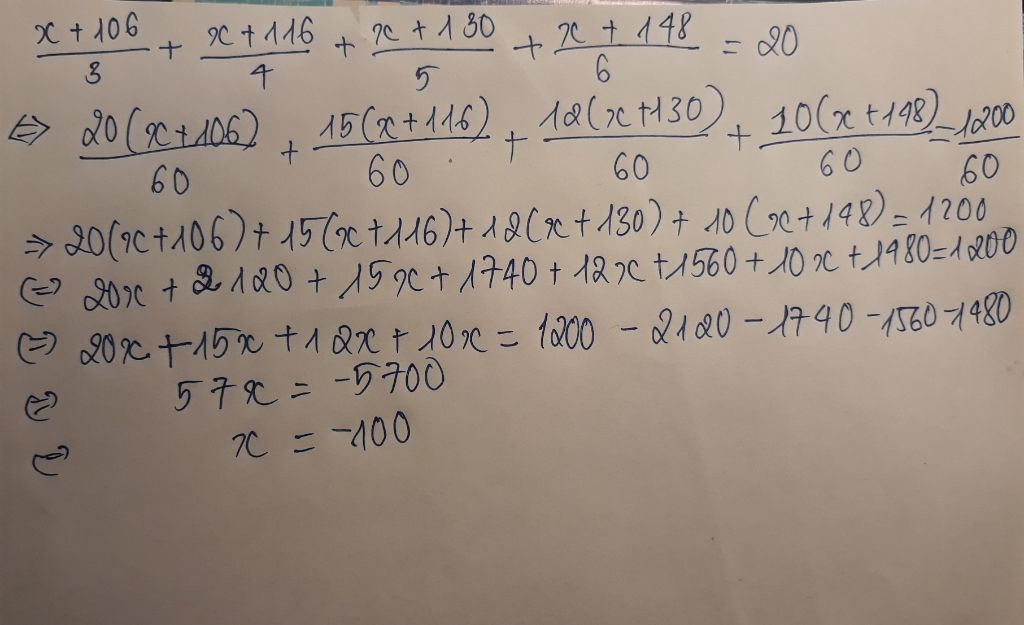 (x+106)/3 + (x+116)/4 + (x+130)/5 + (x+148)/6 = 20
⇔ 20(x+106)/60 + 15(x+116)/60 + 12(x+130)/60 + 10(x+148)/60 = 1200/60
⇒ 20(x+106) + 15(x+116) + 12(x+130) + 10(x+148) = 1200
⇔ 20x + 2120 + 15x + 1740 + 12x + 1560 + 10x + 1480 = 1200
⇔ 20x + 15x + 12x + 10x = 1200 - 2120 - 1740 - 1560 - 1480
⇔ 57x = -5700
⇔ x = -100